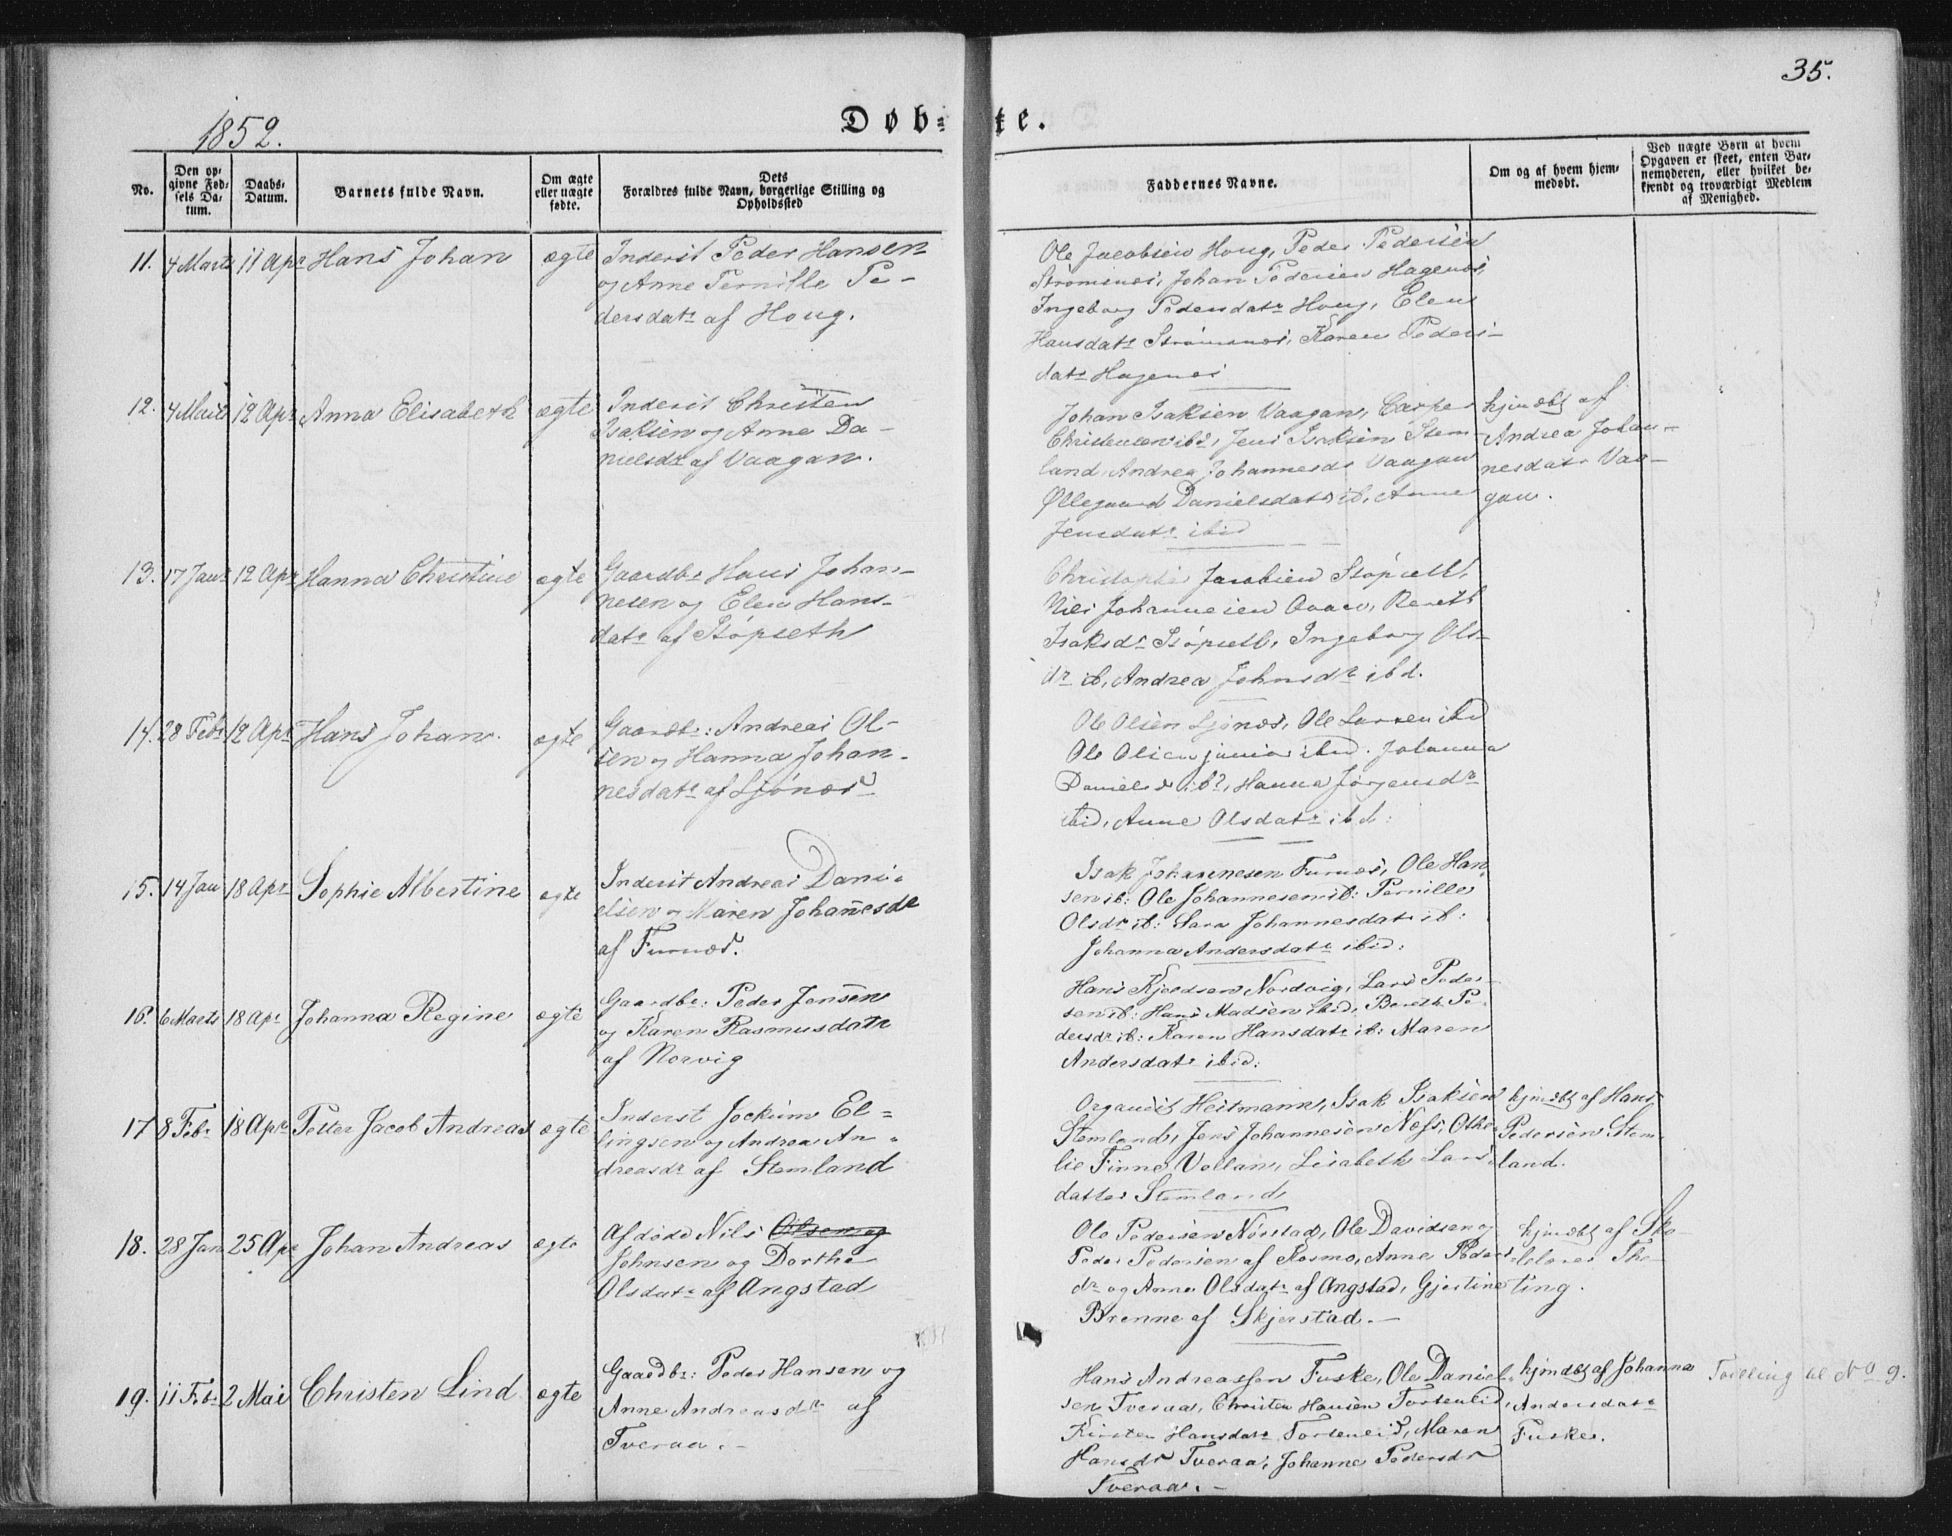 35.
1852.
Døb=
te.
No.
Den op-
givne Fød-
sels Da-
tum.
Daabs-
Datum.
Barnets fulde Navn.
Om ægte
eller uægte
fødte.
Dets
Forældres fulde Navn, borgerlige Stilling og
Opholdssted
Faddernes Navne.
Om og af hvem hjem-
medøbt.
Ved uægte Børn at hvem
Opgaven er skeet, enten Bar-
nemoderen, eller hvilket be-
kjendt og troværdigt Medlem
af Menighed.
11. 4 Marts 11 Apr Hans Johan ægte
Inderst Peder Hansen
og Anne Pernille Pe-
dersdatr af Houg.
Ole Jacobsen Houg, Peder Pedersen
Strømsnæs, Johan Pedersen Hagenæs,
Ingeborg Pedersdatr Houg, Elen
Hansdatr Strømsnæs, Karen Peders-
datr Hagenæs
12. 4 Marts 12 Apr Anna Elisabeth ægte
Inderst Christen
Isaksen og Anne Da-
nielsdr af Vaagan.
Johan Isaksen Vaagan, Casper
Christensen ibd, Jens Isaksen Stem-
land, Andrea Johannesdr Vaagan
Øllegaard Danielsdatr ib, Anne
Jensdatr ibid
hjmdbt af
Andrea Johan-
nesdatr Vaa-
gan.
13. 17 Janr 12 Apr Hanna Christine ægte
Gaardbr Hans Johan-
nesen og Elen Hans-
datr af Støpseth
Jacobsen Støpseth,
Nils Johannesen, Bereth
Isaksdr Støpseth, Ingeborg Ols-
dr ib, Andrea Johnsdr ibd.
14. 28 Febr 12 Apr Hans Johan. ægte
Gaardbr: Andreas Ol-
sen og Hanna Johan-
nesdatr af Ljønæs
Ole Olsen Ljønæs, Ole Larsen ibid
Ole Olsen junior ibid. Johanna
Danielsd ibd, Hanna Jørgensdr
ibid, Anne Olsdatr ibd:
15. 14 Jan 18 Apr Sophie Albertine ægte
Inderst Andreas Dani-
elsen og Maren Johañesdr
af Furnæs.
Isak Johannesen Furnæs, Ole Han-
sen ib: Ole Johannesen ib: Pernille
Olsdr ib: Sara Johannesdatr ib:
Johanna Andersdatr ibid:
16. 6 Marts 18 Apr Johanna Regine ægte
Gaardbr: Peder Jensen
og Karen Rasmusdatr
af Norvig
Hans Kjeldsen Nordvig, Lars Peder-
sen ib: Hans Madsen ibid, Bereth Pe-
dersdr ib: Karen Hansdatr ib: Maren
Andersdatr ibid:
17 8 Febr 18 Apr Petter Jacob Andreas ægte
Inderst Jockum El=
lingsen og Andrea An-
dreasdr af Stemland
Organist Heitmann, Isak Isaksen
Stemland, Jens Johannesen Næss, Othe-
lie Finne Vollan, Lisabeth Lars-
datter Stemland
hjmdbt af Hans
Pedersen Stem-
land.
18. 28 Jan 25 Apr Johan Andreas ægte
Afdøde Nils Olsen og
Johnsen og Dorthe
Olsdatr af Angstad
Ole Pedersen Nørstad, Ole Davidsen og
Peder Pedersen af Kosmo, Anne Peders-
dr og Anne Olsdatr af Angstad, Gjertine
Brenne af Skjerstad. -
hjmdbt af Sko-
lelærer The-
ting.
19. 11 Febr 2 Mai Christen Lind ægte
Gaardbr: Peder Hansen og
Anne Andreasdr af
Tveraa. -
Hans Andreassen Fuske, Ole Daniel-
sen Tveraa, Christen Hansen Torsenlid,
Kirsten Hansdatr Torsenlid, Maren
Hansdr Tveraa, Johanne Pedersdr
Tveraa. -
hjmdbt af Johanna
Andersdatr
Fuske.
Tvilling til No 9.